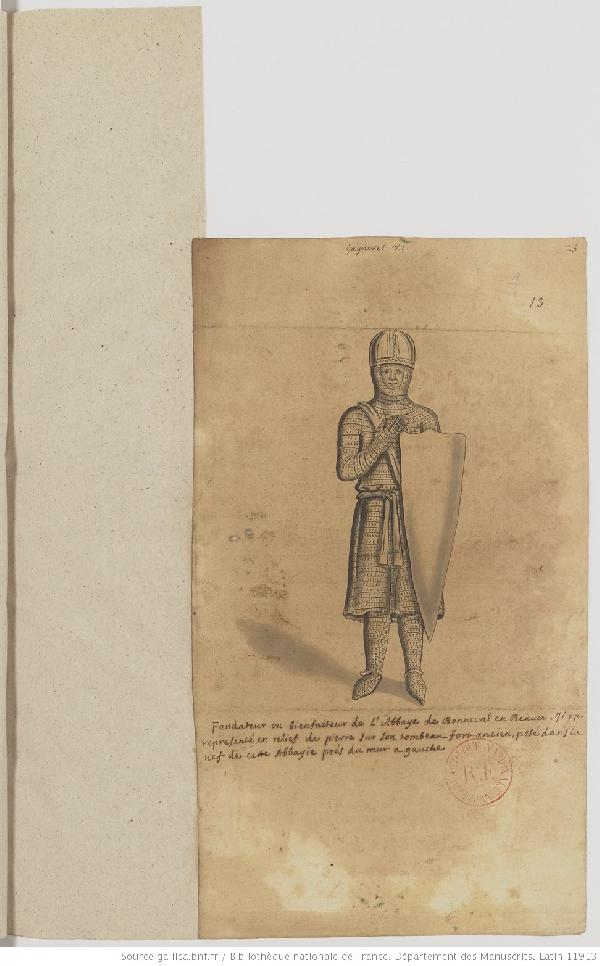 Gagneres
13
Fondateur ou bienfaiteur de L'Abbaye de Bonneval en Beauce. Il est
représenté en relief de pierre sur son tombeau fort ancien, posé dans la
nef de cette Abbayie prés du mur a gauche
R.F.
Source gallica.bnf.fr / Bibliothèque nationale de France. Département des Manuscrits. Latin 11913